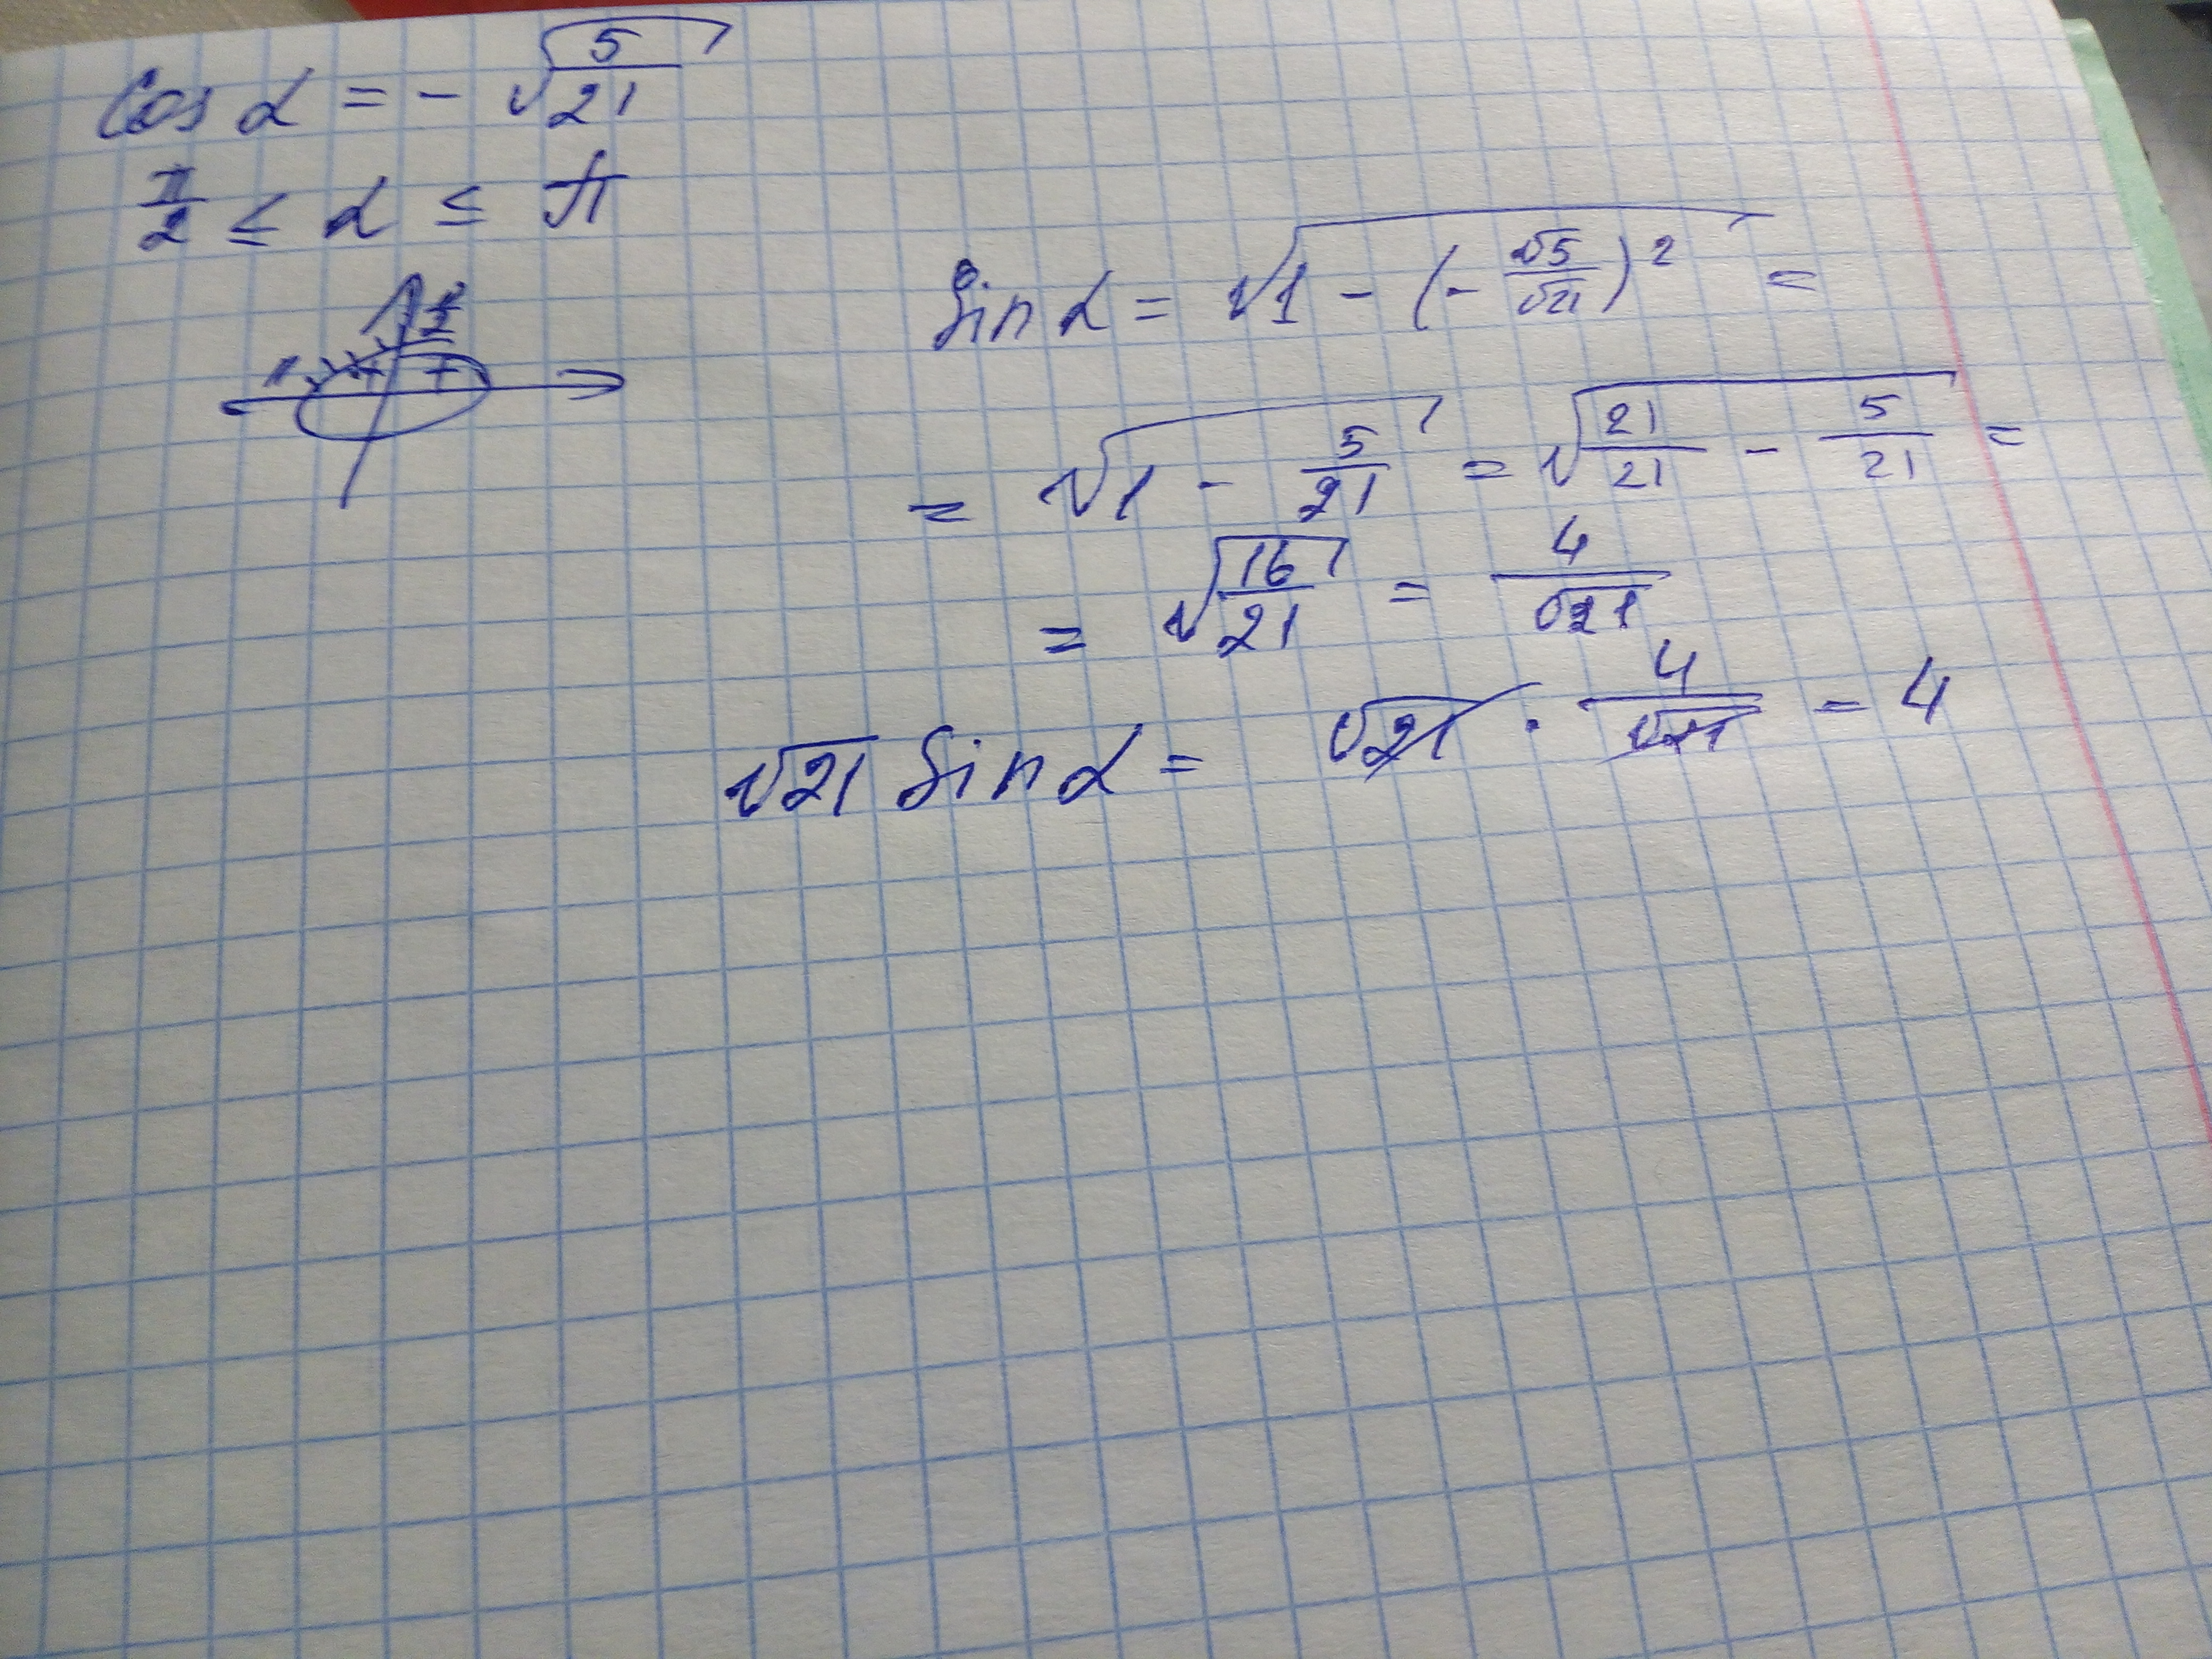 cos α = - √(5/21)
π/2 ≤ α ≤ π
π/2
π + +
sin α = √(1 - (- √5/√21)²) =
= √(1 - 5/21) = √(21/21 - 5/21) =
= √(16/21) = 4/√21
√21 sin α = √21 · 4/√21 = 4